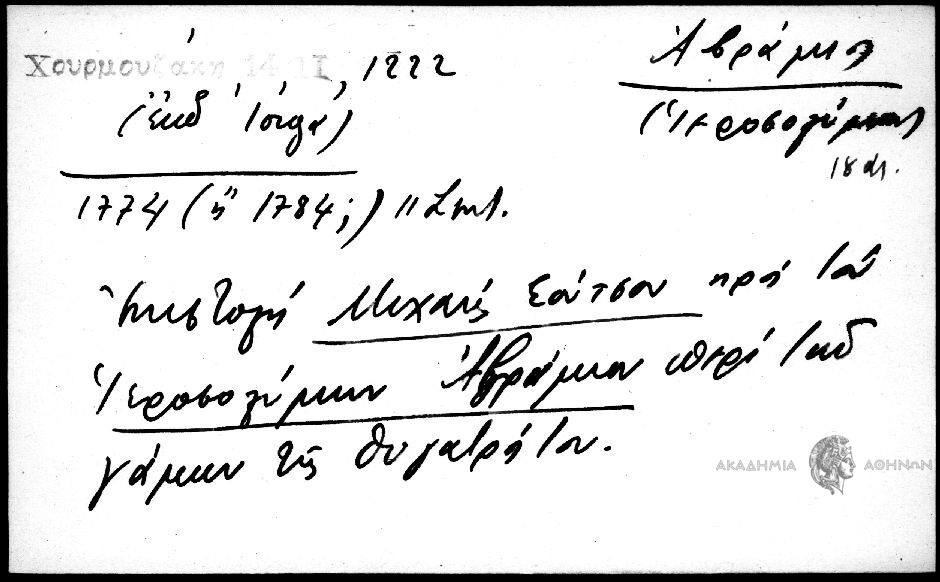 Χουρμουζάκη 14 II, 1222
Ἀβράμιος
(ἔκδ Ἰόργα)
(Ἱεροσολύμων)
18 αἰ.
1774 (ἢ 1784;) 11 Σεπτ.
Ἐπιστολὴ Μιχαὴλ Σούτσου πρὸς τὸν
Ἱεροσολύμων Ἀβράμιον περὶ τοῦ
γάμου τῆς θυγατρός του.
ΑΚΑΔΗΜΙΑ ΑΘΗΝΩΝ